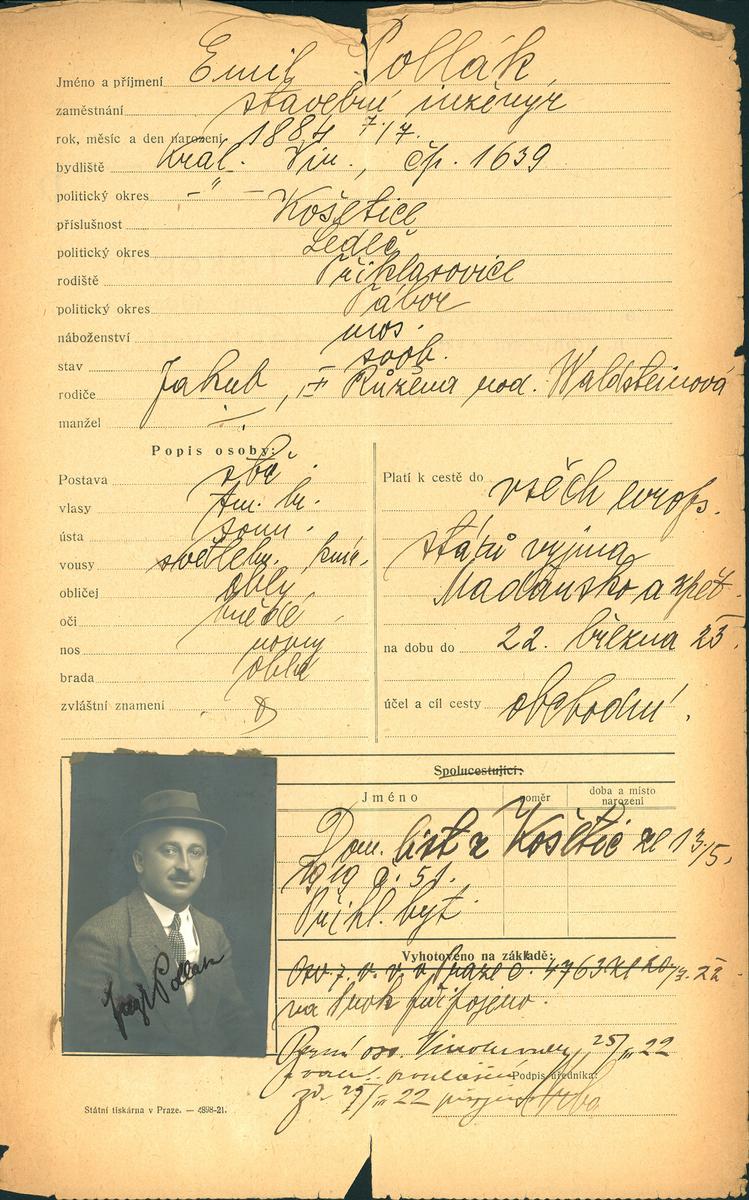 Jméno a příjmení Emil Pollák
zaměstnání stavební inženýr
rok, měsíc a den narození 1884 7/7.
bydliště Král. Vin., čp. 1639
politický okres – " –
příslušnost Košetice
politický okres Ledeč
rodiště
politický okres Tábor
náboženství mos.
stav svob.
rodiče Jakub, Růžena roz. Waldsteinová
manžel
Popis osoby:
Postava
vlasy tm. br.
ústa soum.
vousy
obličej oblý
oči hnědé
nos
brada oblá
zvláštní znamení
Platí k cestě do všech evrops.
států vyjma
Maďarsko a zpět.
na dobu do 22. března 23.
účel a cíl cesty obchodní.
Spolucestující:
Jméno
poměr
doba a místo
narození
Dom. list z Košetic ze 13/5.
1919 č. 51.
Přihl. byt.
Vyhotoveno na základě:
Praze č. 4763
na připojeno.
25/III 22
Podpis úředníka:
22
Ing. E. Pollak
Státní tiskárna v Praze. — 4898-21.